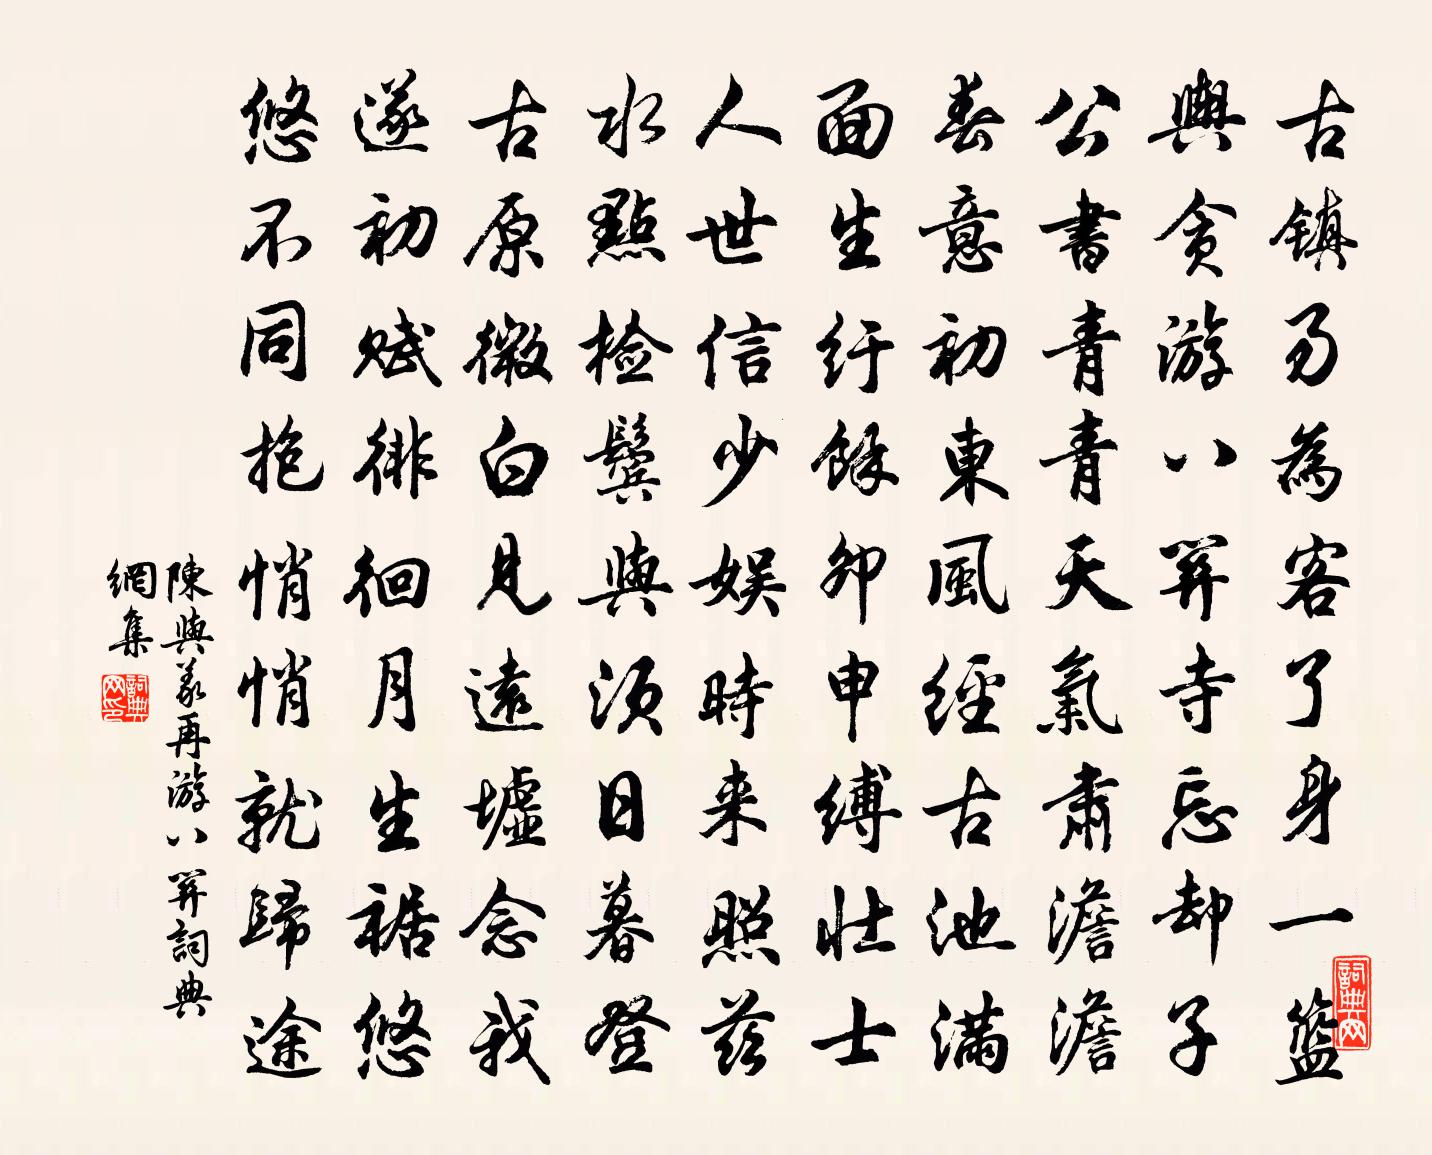 古镇易為客了身一籃
輿貪游八關寺忘却子
公書青青天氣肅澹澹
春意初東風經古池滿
面生紆餘卯申縛壮士
人世信少娱時来照兹
水點檢鬢與須日暮登
古原微白見遠墟念我
遂初赋徘徊月生裾悠
悠不同抱悄悄就歸途
陳與義再游八關詞典
網集
詞典网
詞典网